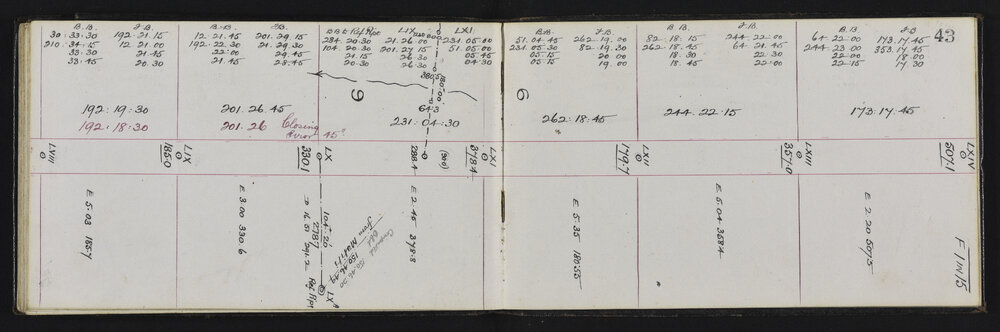 43
B.B. F.B.
30:33:30 192.21.15
210:34:15 12 21.00
33:30 21.45
33:45 20.30
192:19:30
192:18:30
B.B. F.B.
12 21.45 201.29.15
192.22.30 21.29.30
22:00 29.45
21.45 28.45
201.26.45
201.26 Closing
Error 45"
284.20.30 201.26.00
104.20.30 201.27.15
21.15 26.30
20.30 26.30
LXI
231.05.00
51.05.00
05.45
04.30
6
380.5
150°00
643
231:04:30
B.B. F.B.
51.04.45 262.19.00
231.05.30 82.19.30
05.15 20.00
05.15 19.00
6
262:18:45
B.B. F.B.
82.18.15 244.22.00
262.18.45 64.21.45
18.30 22.30
18.45 22.00
244.22.15
B.B F.B
64 22.00 173.17.45
244 23.00 353.17.45
22.00 18.00
22.15 17 30
173:17.45
LVIII
LIX
185.0
LX
330.1
288.4
(360)
LXI
378.4
LXII
179.7
LXIII
357.0
LXIV
507.1
E 5.03 185.7
E 3.00 330.6
104°20'
278.7
LX
Ref Ppt
E 2.45 378.8
Compared
from
E 5.35 180.55
E 5.04 358.4
E 2 20 507.5
F 1 IN 15